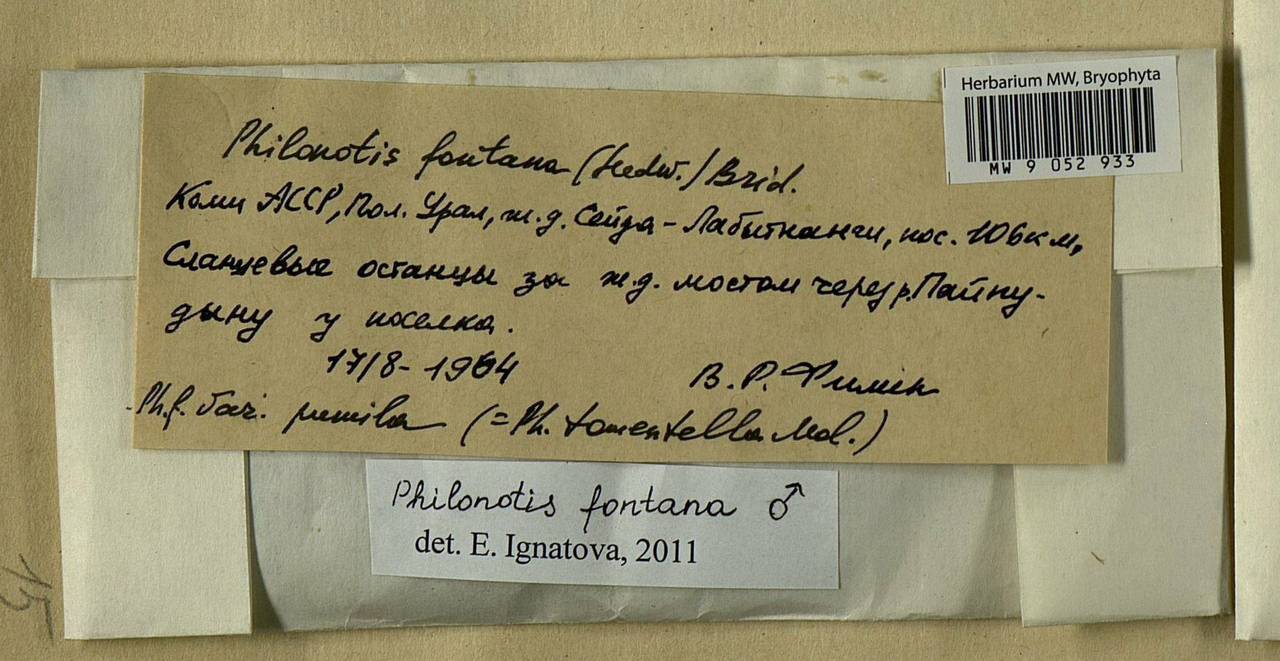 Herbarium MW, Bryophyta
MW 9 052 933
Philonotis fontana (Hedw.) Brid.
Коми АССР, Пол. Урал, ж.д. Сейда - Лабытнанги, пос. 106км,
Сланцевые останцы за ж.д. мостом через р. Пайпу-
дыну у поселка.
17/8 - 1964
В. Р. Филин
Ph. f. var. pumila (= Ph. tomentella Mol.)
Philonotis fontana ♂
det. E. Ignatova, 2011